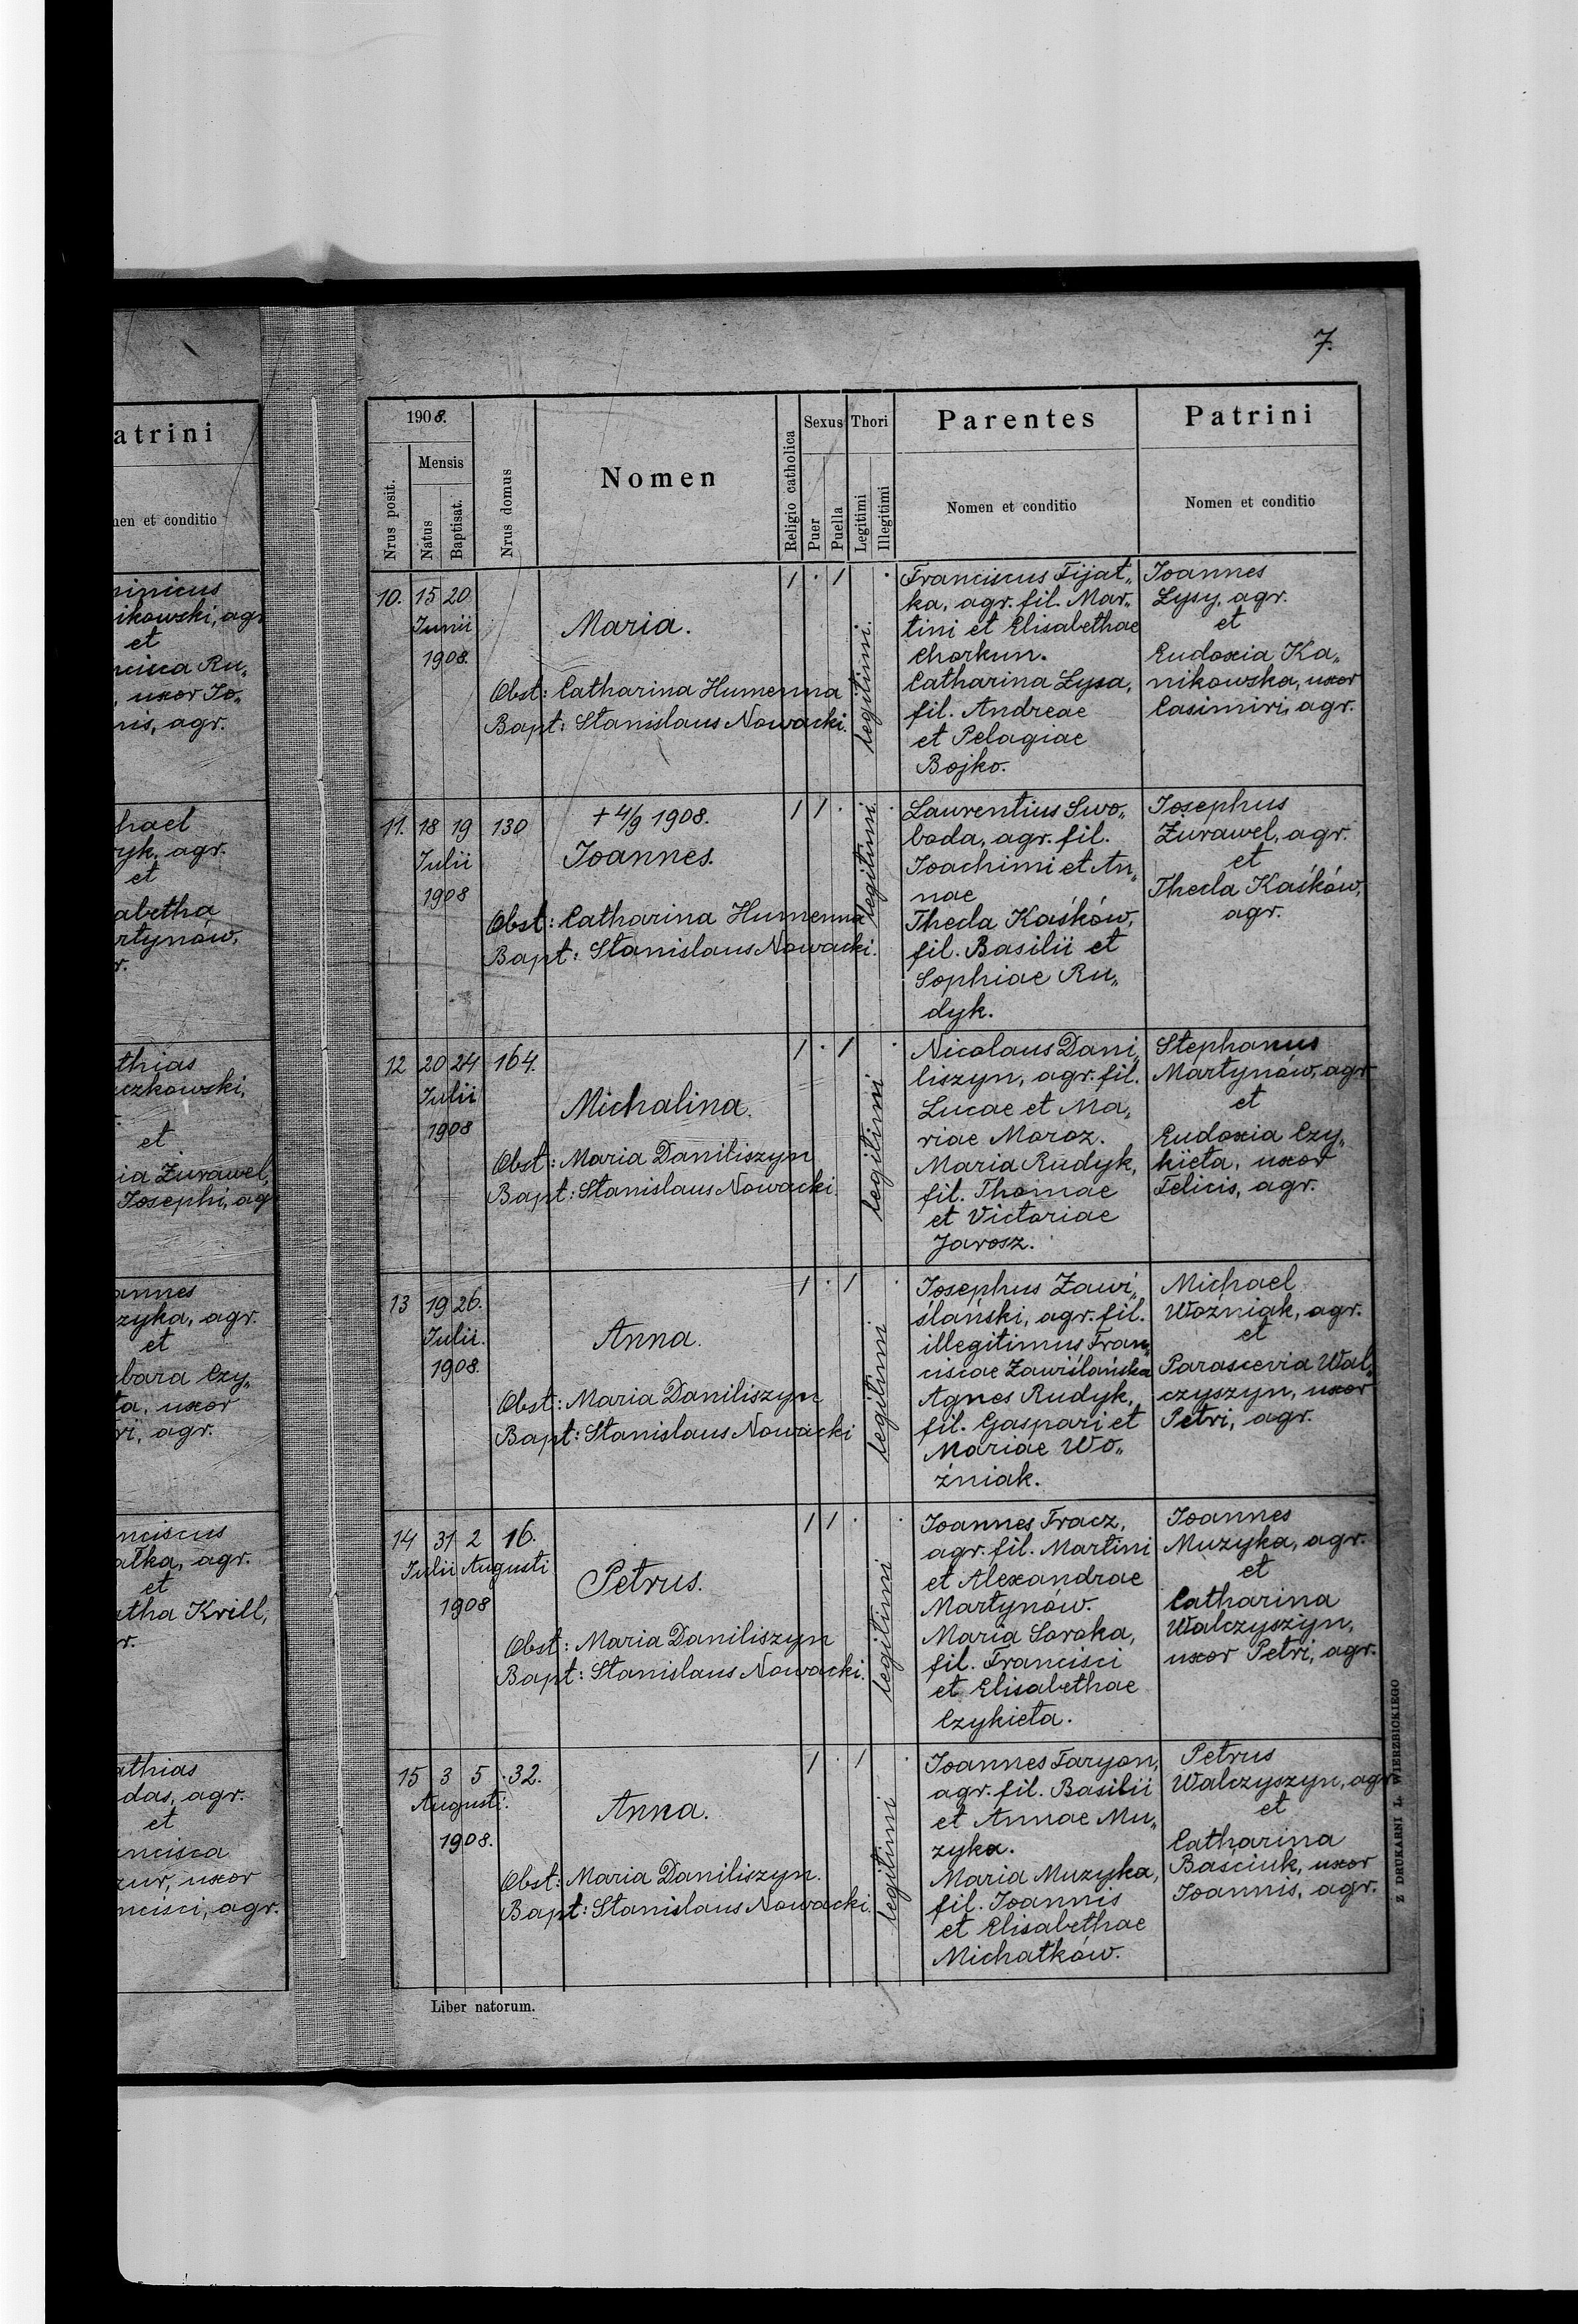 7.
atrini
nen et conditio
ninicus
nikowski, agr
et
ncisca Ru„
, uxor Jo„
nis, agr.
hael
ryk, agr.
et
abetha
rtynów,
r.
thias
uczkowski,
et
ia Żurawel,
Josephi, ag
annes
zyka, agr.
et
bara Czy„
ta, uxor
ri, agr.
nciscus
ałka, agr.
et
atha Krill,
r.
athias
das, agr.
et
ncisca
zur, uxor
ncisci, agr.
1908.
Nrus posit.
Mensis
Natus
Baptisat.
Nrus domus
Nomen
Religio catholica
Sexus
Puer
Puella
Thori
Legitimi
Illegitimi
Parentes
Nomen et conditio
Patrini
Nomen et conditio
10. 15 20
Junii
1908.
Maria.
Obst: Catharina Humenna
Bapt: Stanislaus Nowacki.
1 · 1 ·
legitimi.
Franciscus Fijał„
ka, agr. fil. Mar„
tini et Elisabethae
Chorkun.
Catharina Łysa,
fil. Andreae
et Pelagiae
Bojko.
Joannes
Łysy, agr.
et
Eudoxia Ka„
nikowska, uxor
Casimiri, agr.
11. 18 19 130
Julii
1908
+ 4/9 1908.
Joannes.
Obst: Catharina Humenna
Bapt: Stanislaus Nowacki.
1 1 · ·
legitimi
Laurentius Swo„
boda, agr. fil.
Joachimi et An„
nae
Thecla Kaśków,
fil. Basilii et
Sophiae Ru„
dyk.
Josephus
Żurawel, agr.
et
Thecla Kaśków,
agr.
12 20 24 164.
Julii
1908
Michalina.
Obst: Maria Daniliszyn
Bapt: Stanislaus Nowacki.
1 · 1 ·
legitimi
Nicolaus Dani„
liszyn, agr. fil.
Lucae et Ma„
riae Moroz.
Maria Rudyk,
fil. Thomae
et Victoriae
Jarosz.
Stephanus
Martynów, agr
et
Eudoxia Czy„
kieta, uxor
Felicis, agr.
13 19 26.
Julii.
1908.
Anna.
Obst: Maria Daniliszyn
Bapt: Stanislaus Nowacki
1 · 1 ·
legitimi
Josephus Zawi„
ślański, agr. fil.
illegitimus Fran„
ciscae Zawiślańska
Agnes Rudyk,
fil. Gaspari et
Mariae Wo„
źniak.
Michael
Woźniak, agr.
et
Parascevia Wal„
czyszyn, uxor
Petri, agr.
14 31 2 16.
Julii Augusti
1908
Petrus.
Obst: Maria Daniliszyn
Bapt: Stanislaus Nowacki.
1 1 · ·
legitimi
Joannes Tracz,
agr. fil. Martini
et Alexandrae
Martynów.
Maria Soroka,
fil. Francisci
et Elisabethae
Czykieta.
Joannes
Muzyka, agr.
et
Catharina
Walczyszyn,
uxor Petri, agr.
15 3 5 32.
Augusti.
1908.
Anna.
Obst: Maria Daniliszyn.
Bapt: Stanislaus Nowacki.
1 · 1 ·
legitimi
Joannes Taryon,
agr. fil. Basilii
et Annae Mu„
zyka.
Maria Muzyka,
fil. Joannis
et Elisabethae
Michałków.
Petrus
Walczyszyn, agr
et
Catharina
Baściuk, uxor
Joannis, agr.
Liber natorum.
Z DRUKARNI L. WIERZBICKIEGO